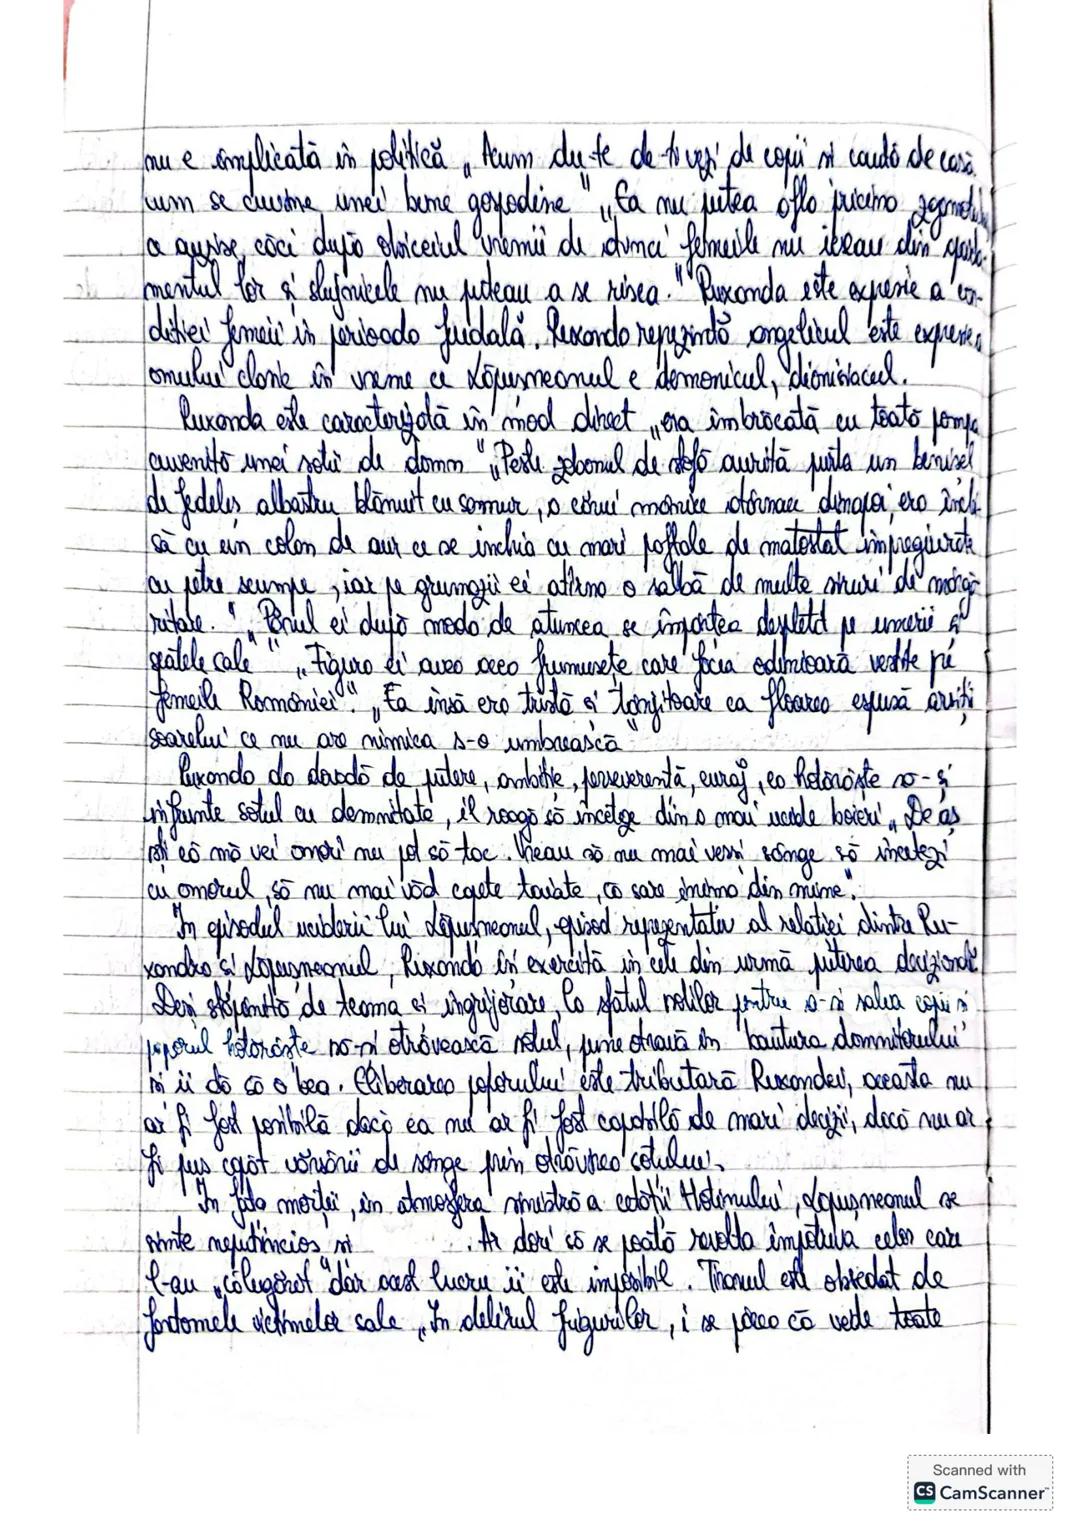 nu e implicată în politică „Acum du-te de-ți vezi de copii și caută de casă,
cum se cuvine unei bune gospodine" „Ea nu putea afla pricina zgomotului
a auzise, căci după obiceiul vremii de atunci femeile nu ieseau din aparta-
mentul lor și slujnicele nu puteau a se risca." Ruxanda este expresie a con-
diției femeii în perioada feudală. Ruxanda reprezintă angelicul este expresia
omului în vreme ce Lăpușneanul e demonicul, dionisiacul.
Ruxanda este caracterizată în mod direct „era îmbrăcată cu toată pompa
cuvenită unei soții de domn" „Peste zobonul de stofă aurită purta un benișel
de felendeș albastru blănuit cu samur, a cărui mânice atârnau dinapoi, era încin-
să cu un colan de aur ce se închia cu mari paftale de matostat împregiurate
cu petre scumpe, iar pe grumazii ei atârna o salbă de multe șiruri de mărgă-
ritare." „Părul ei după moda de atuncea se împărțea despletit pe umerii și
spatele sale" „Figura ei avea acea frumusețe care făcea odinioară vestite pe
femeile României." „Ea însă era tristă și tânjitoare ca floarea espusă arșiții
soarelui ce nu are nimica s-o umbrească"
Ruxanda dă dovadă de putere, ambiție, perseverență, curaj, ea hotărăște să-și
înfrunte soțul cu demnitate, îl roagă să înceteze din a mai ucide boieri „De aș
ști că mă vei omorî nu pot să tac. Vreau să nu mai verși sânge să încetezi
cu omorul, să nu mai văd capete tăiate, că sare inima din mine".
În episodul uciderii lui Lăpușneanul, episod reprezentativ al relației dintre Ru-
xandra și Lăpușneanul, Ruxanda își exercită în cele din urmă puterea decizională
Deși stăpânită de teamă și îngrijorare, la sfatul soților pentru a-și salva copii și
poporul hotărăște să-și otrăvească soțul, pune otravă în bautura domnitorului
și îi dă să o bea. Eliberarea poporului este tributară Ruxandei, aceasta nu
ar fi fost posibilă dacă ea nu ar fi fost capabilă de mari decizii, dacă nu ar
fi pus capăt vărsării de sânge prin otrăvirea soțului.
În fața morții, în atmosfera sinistră a cetății Hotinului, Lăpușneanul se
simte neputincios și . Ar dori să se poată revolta împotriva celor care
l-au „călugărit" dar acest lucru îi este imposibil. Tiranul este obsedat de
fantomele victimelor sale „În delirul frigurilor, i se părea că vede toate
Scanned with
CS CamScanner